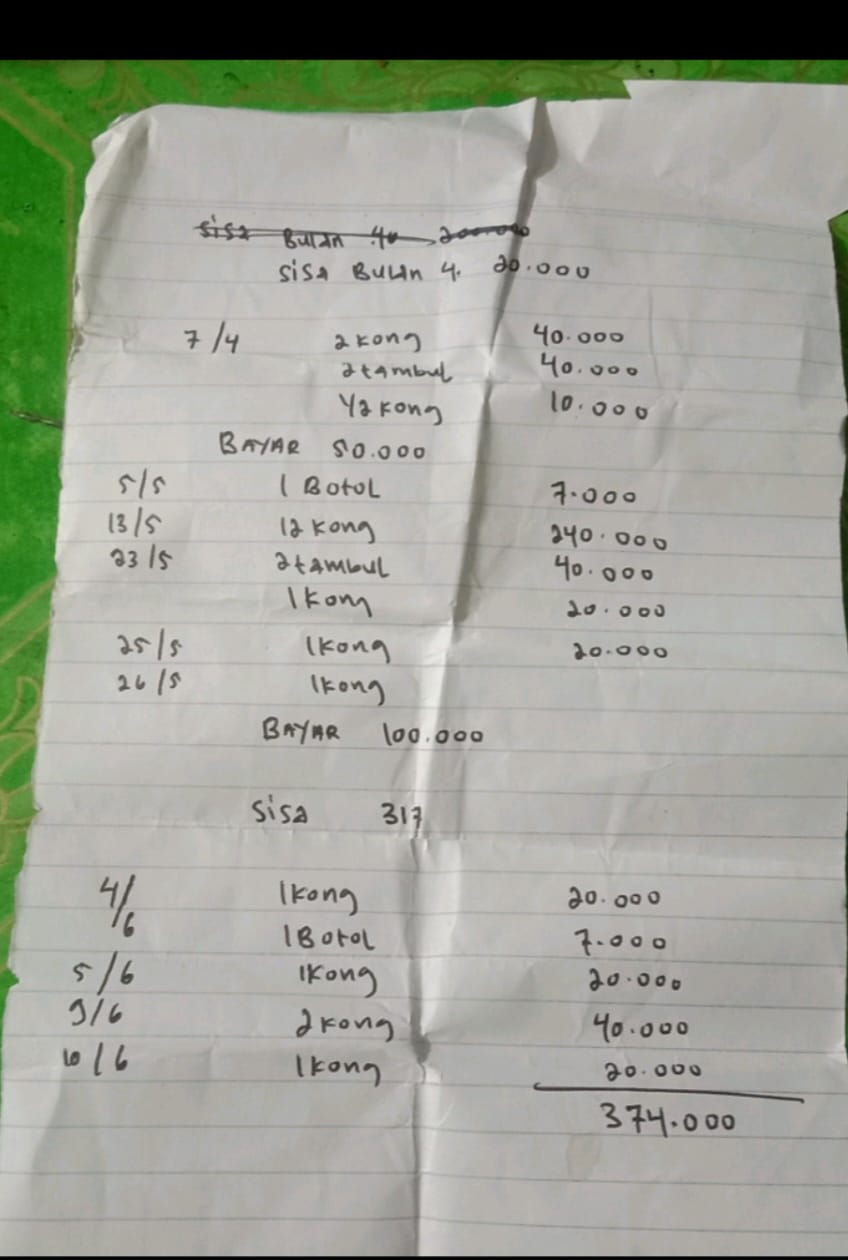 sisa Bulan 4 200.000
SiSA BULAN 4. 20.000
7/4 2 kong 40.000
2 tambul 40.000
1/2 kong 10.000
BAYAR 50.000
5/5 1 BOTOL 7.000
13/5 12 kong 240.000
23/5 2 tAmbuL 40.000
1 kong 20.000
25/5 1 kong 20.000
26/5 1 kong
BAYAR 100.000
SiSa 317
4/6 1 kong 20.000
1 Botol 7.000
5/6 1 kong 20.000
9/6 2 kong 40.000
10/6 1 kong 20.000
374.000